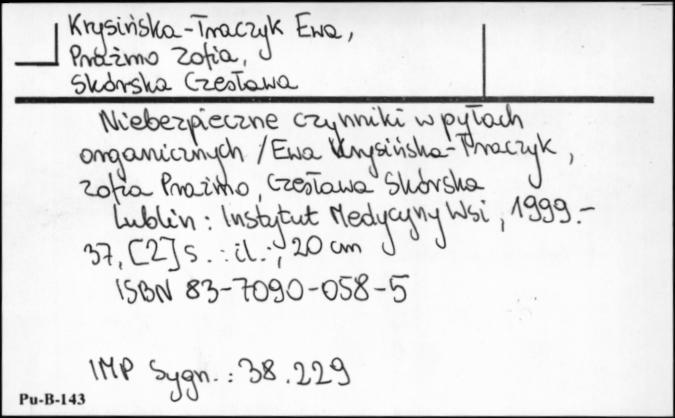 Krysińska-Traczyk Ewa,
Prażmo Zofia,
Skórska Czesława
Niebezpieczne czynniki w pyłach
organicznych / Ewa Krysińska-Traczyk,
Zofia Prażmo, Czesława Skórska
Lublin : Instytut Medycyny Wsi, 1999.-
37, [2] s. : il. ; 20 cm
ISBN 83-7090-058-5
IMP Sygn. : 38.229
Pu-B-143